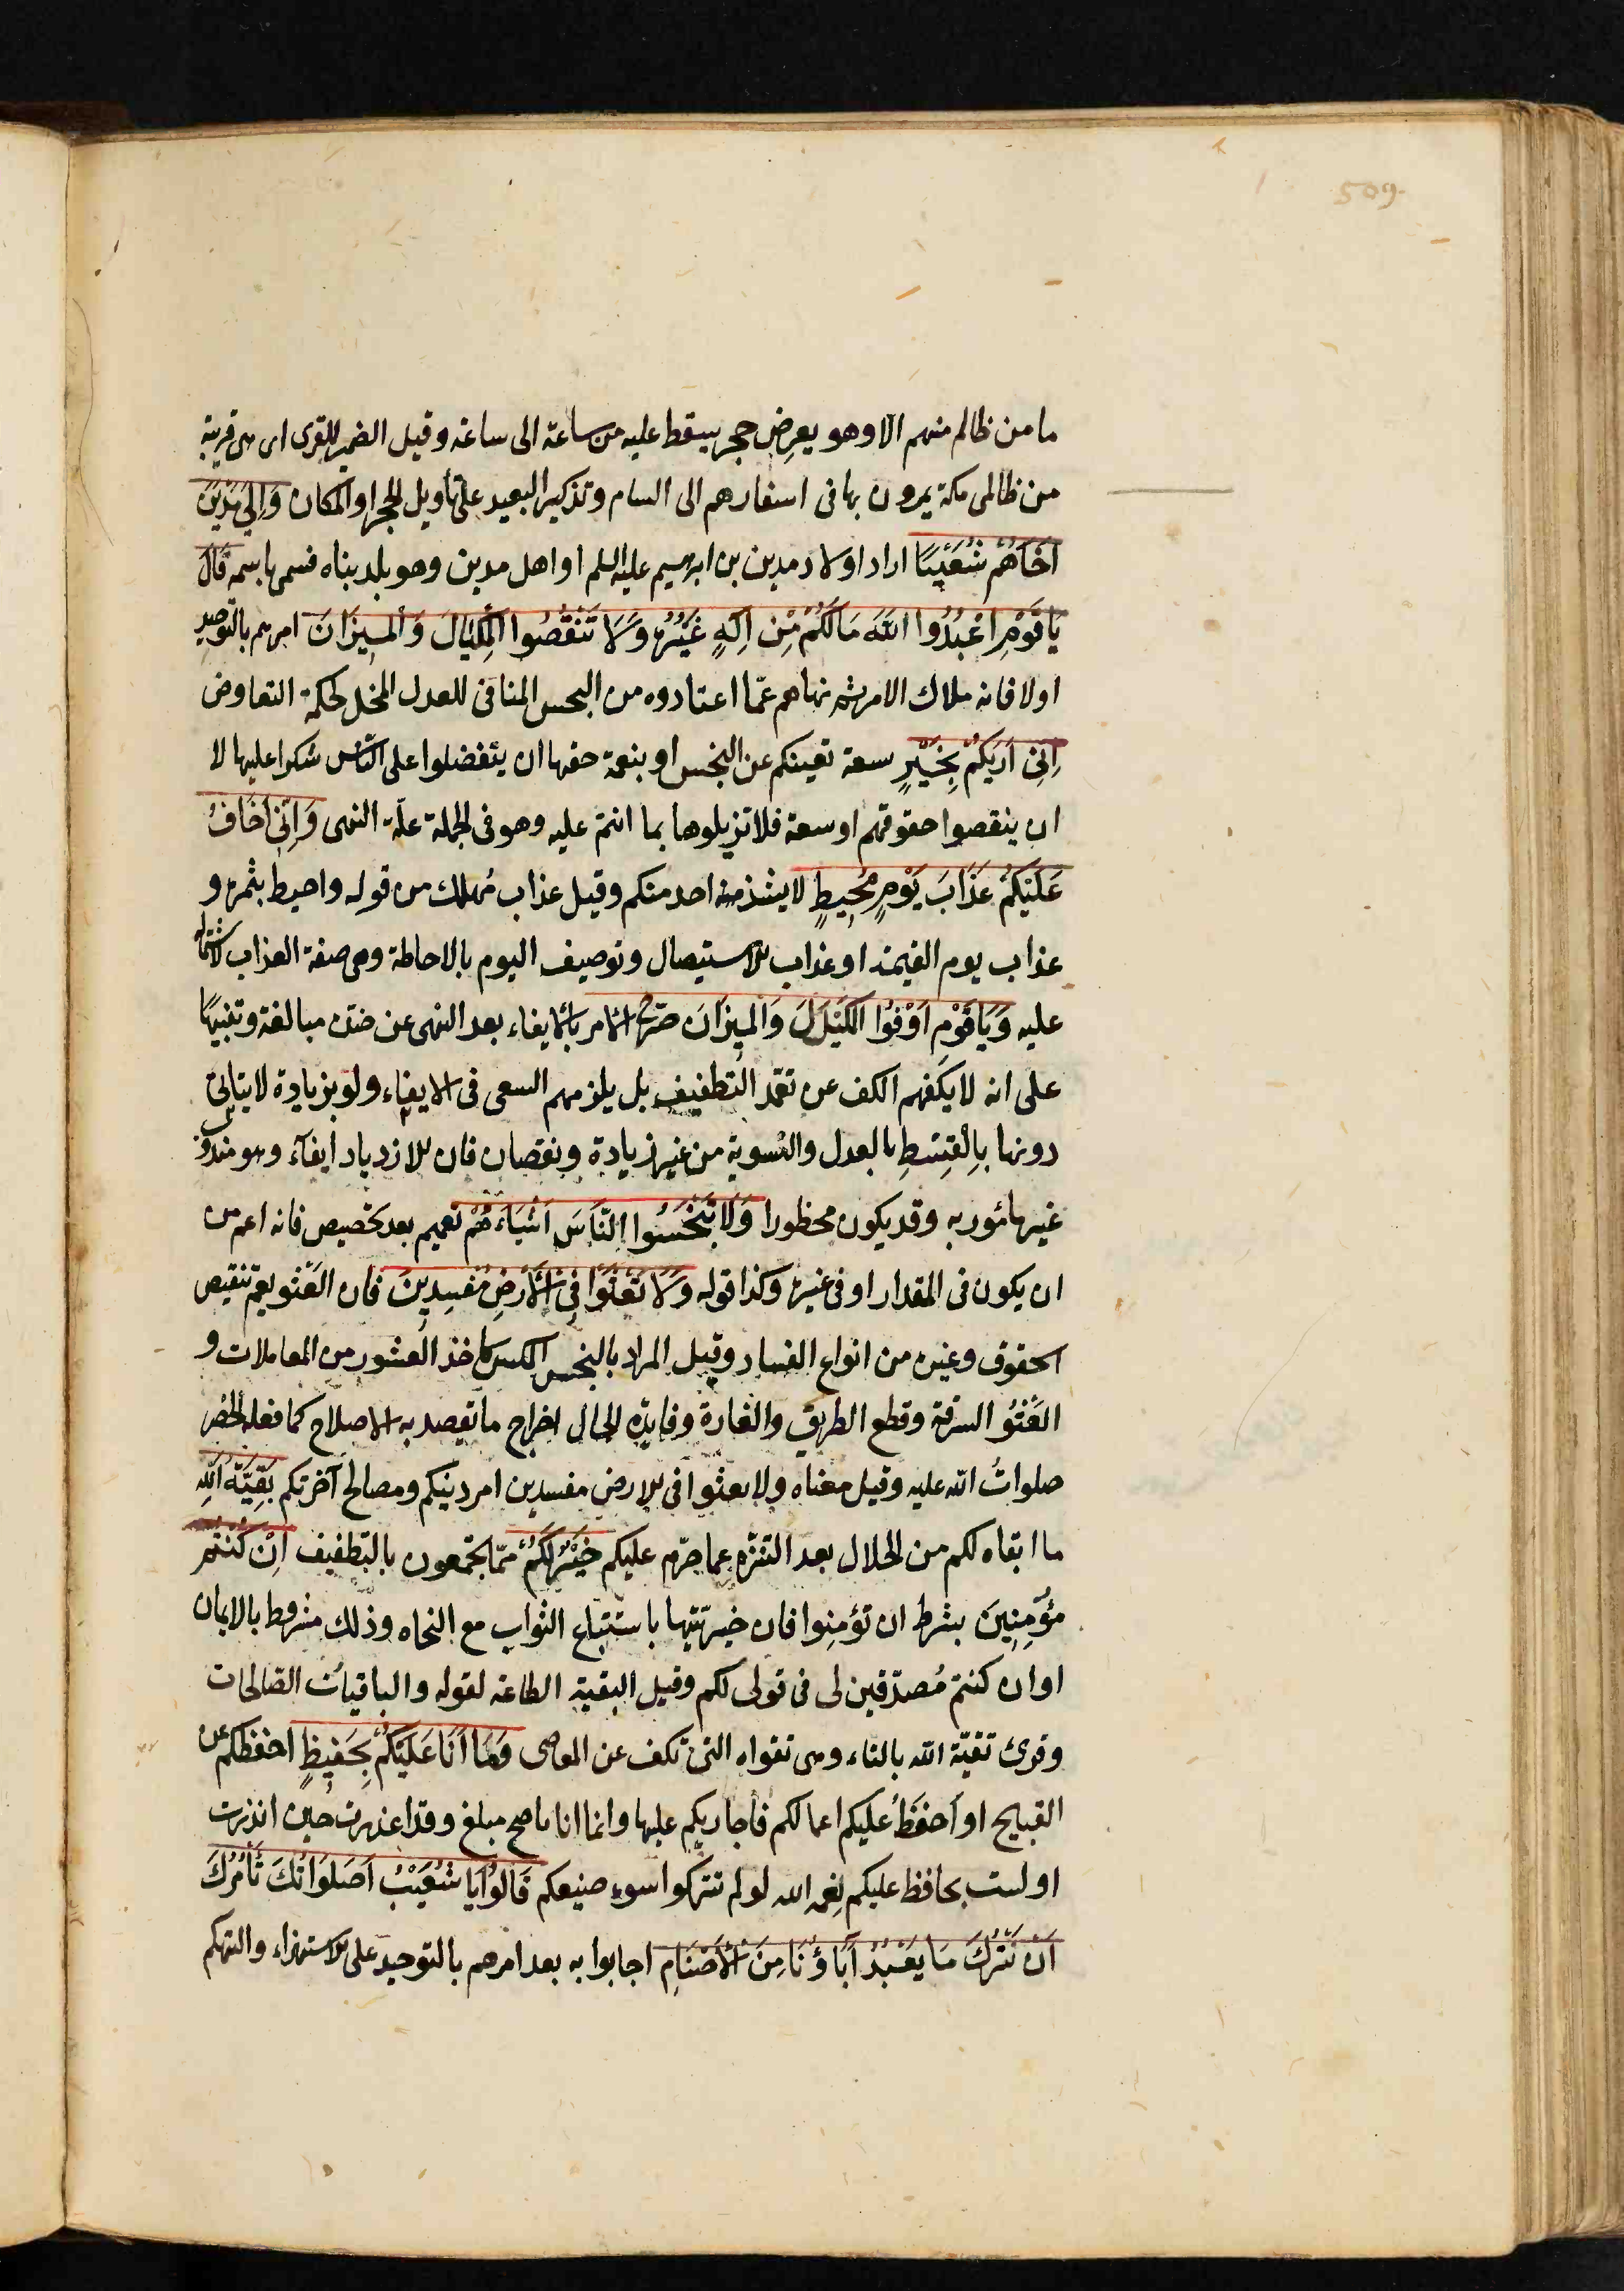 509
ما من ظالم منهم الا وهو يعرض حجر يسقط عليه من ساعة الى ساعة وقيل الضمير للقرى اى هى قريبة
من ظالمى مكة يمرون بها فى اسفارهم الى الشام وتذكير البعيد على تأويل الحجر او المكان وَاِلىٰ مَدْيَنَ
اَخَاهُمْ شُعَيْبًا اراد اولاد مدين بن ابرهيم عليه السلم او اهل مدين وهو بلد بناه فسمى باسمه قَالَ
يَا قَوْمِ اعْبُدُوا اللّٰهَ مَالَكُمْ مِنْ اِلٰهٍ غَيْرُهُ وَلَا تَنْقُصُوا الْمِكْيَالَ وَالْمِيزَانَ امرهم بالتوحيد
اولا فانه ملاك الامر ثم نهاهم عمّا اعتادوه من البخس المنافى للعدل المخل بحكمة التعاوض
اِنّى اَرَيكُمْ بِخَيْرٍ سعة تغنيكم عن البخس او بنعمة حقها ان يتفضلوا على النّاس شكرا عليها لا
ان ينقصوا حقوقهم او سعة فلا تزيلوها بما انتم عليه وهو فى الجملة علّة النهى وَاِنّى اَخَافُ
عَلَيْكُمْ عَذَابَ يَوْمٍ مُحِيطٍ لا يشذ منه احد منكم وقيل عذاب مُهلك من قوله واحيط بثمره و
عذاب يوم القيمة او عذاب الاستيصال وتوصيف اليوم بالاحاطة وهى صفة العذاب لاشتماله
عليه وَيَا قَوْمِ اَوْفُوا الْكَيْلَ وَالْمِيزَانَ صرّح الامر بالايفاء بعد النهى عن ضدّه مبالغة وتنبيهًا
على انه لا يكفيهم الكف عن تعمّد التطفيف بل يلزمهم السعى فى الايفاء ولو بزيادة لا يتأتى
دونها بِالْقِسْطِ بالعدل والتسوية من غير زيادة ونقصان فان الازدياد ايفآء وهو مندوب
غير مأمور به وقد يكون محظورا وَلَا تَبْخَسُوا النَّاسَ اَشْيَاءَهُمْ تعميم بعد تخصيص فانه اعم من
ان يكون فى المقدار او فى غيره وكذا قوله وَلَا تَعْثَوْا فِى الْاَرْضِ مُفْسِدِينَ فان العُثو يعم تنقيص
الحقوق وغيره من انواع الفساد وقيل المراد بالبخس المكس كاخذ العشور من المعاملات و
العُثوّ السرقة وقطع الطريق والغارة وفايدة الحال اخراج ما تقصد به الاصلاح كما فعله الخضر
صلواتُ الله عليه وقيل معناه ولا تعثوا فى الارض مفسدين امر دينكم ومصالح آخرتكم بَقِيَّةُ اللّٰهِ
ما ابقاه لكم من الحلال بعد التنزّه عما حرّم عليكم خَيْرٌ لَكُمْ ممّا تجمعون بالتطفيف اِنْ كُنْتُمْ
مُؤْمِنِينَ بشرط ان تؤمنوا فان خيريّتها باستتباع الثواب مع النجاة وذلك مشروط بالايمان
او ان كنتم مُصدّقين لى فى قولى لكم وقيل البقية الطاعة لقوله والباقيات الصّالحات
وقرئ تقيّة الله بالتاء وهى تقواه التى تكف عن المعاصى وَمَا اَنَا عَلَيْكُمْ بِحَفِيظٍ احفظكم عن
القبايح او أحفظَ عليكم اعمالكم فاجازيكم عليها وانما انا ناصح مبلغ وقد اعذرت حين انذرت
او لست بحافظ عليكم نِعم الله لو لم تتركوا سوء صنيعكم قَالُوا يَا شُعَيْبُ اَصَلَوَاتُكَ تَأْمُرُكَ
اَنْ نَتْرُكَ مَا يَعْبُدُ آبَاؤُنَا مِنَ الْاَصْنَامِ اجابوا به بعد امرهم بالتوحيد على الاستهزاء والتهكم